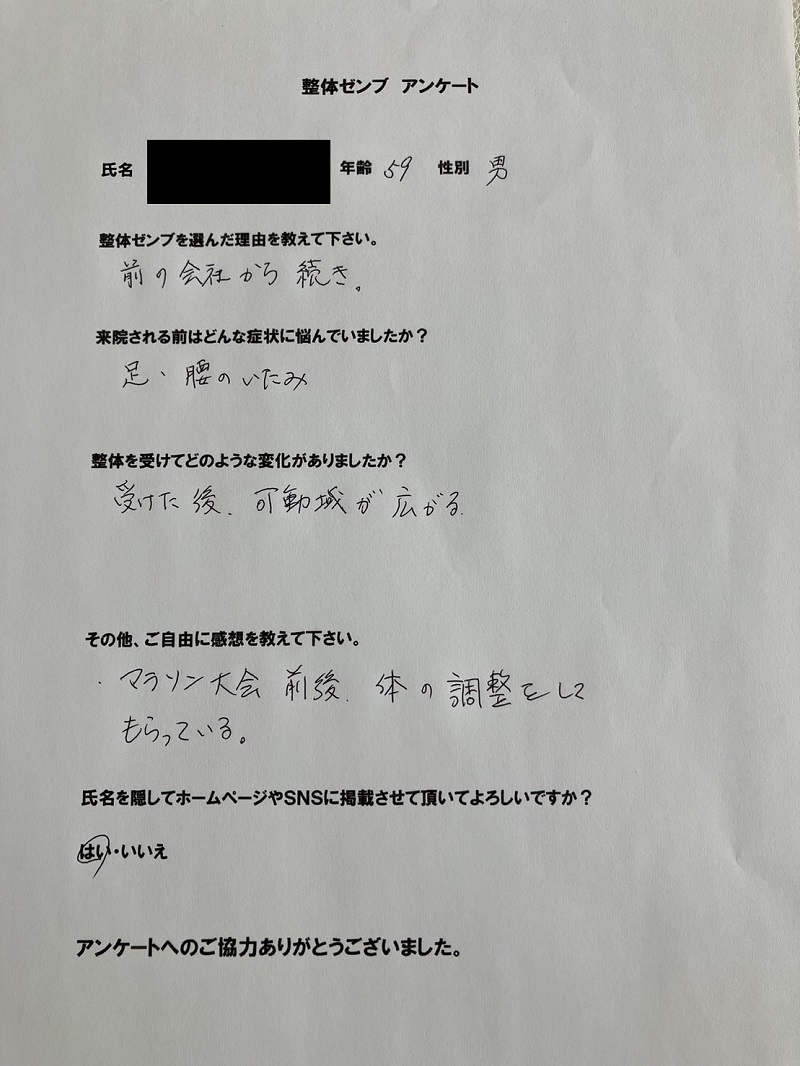 整体ゼンブ アンケート
氏名 年齢 59 性別 男
整体ゼンブを選んだ理由を教えて下さい。
前の会社から続き。
来院される前はどんな症状に悩んでいましたか？
足、腰のいたみ
整体を受けてどのような変化がありましたか？
受けた後、可動域が広がる.
その他、ご自由に感想を教えて下さい。
・マラソン大会前後、体の調整をして
もらっている。
氏名を隠してホームページやSNSに掲載させて頂いてよろしいですか？
はい・いいえ
アンケートへのご協力ありがとうございました。